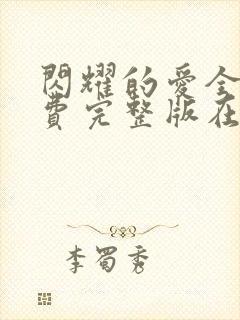 閃耀的愛全
費完整版在
李蜀秀